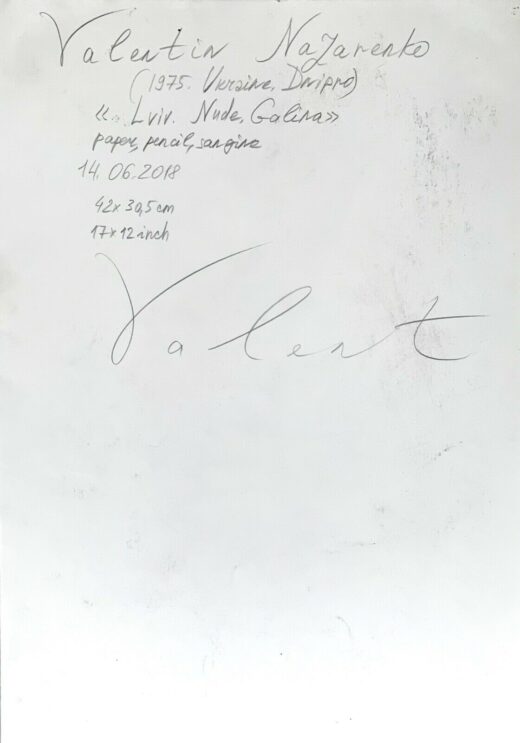 Valentin Nazarenko
(1975. Ukraine, Dnipro)
«Lviv. Nude, Galina»
paper, pencil, sangine
14.06.2018
42x30,5 cm
17x12 inch
Valent